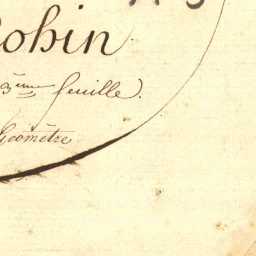 obin
3ème feuille.
Géomètre